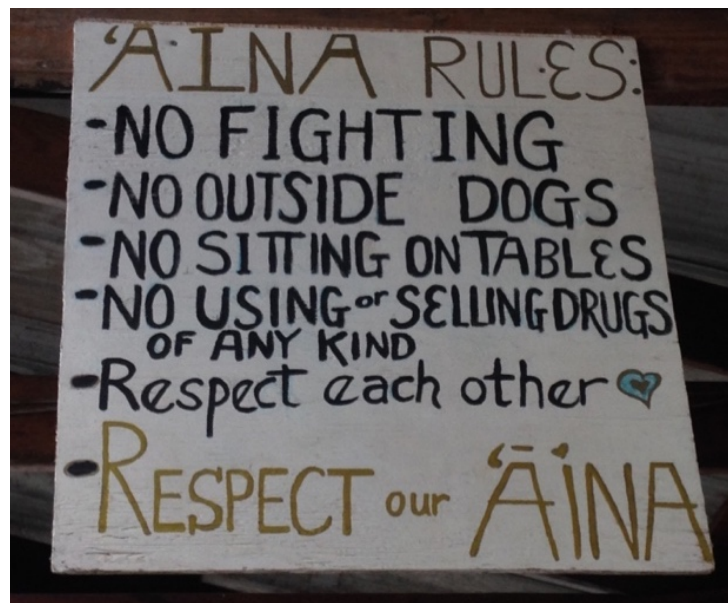 ʻĀINA RULES:
-NO FIGHTING
-NO OUTSIDE DOGS
-NO SITTING ON TABLES
-NO USING or SELLING DRUGS
OF ANY KIND
-Respect each other
-RESPECT our ʻĀINA